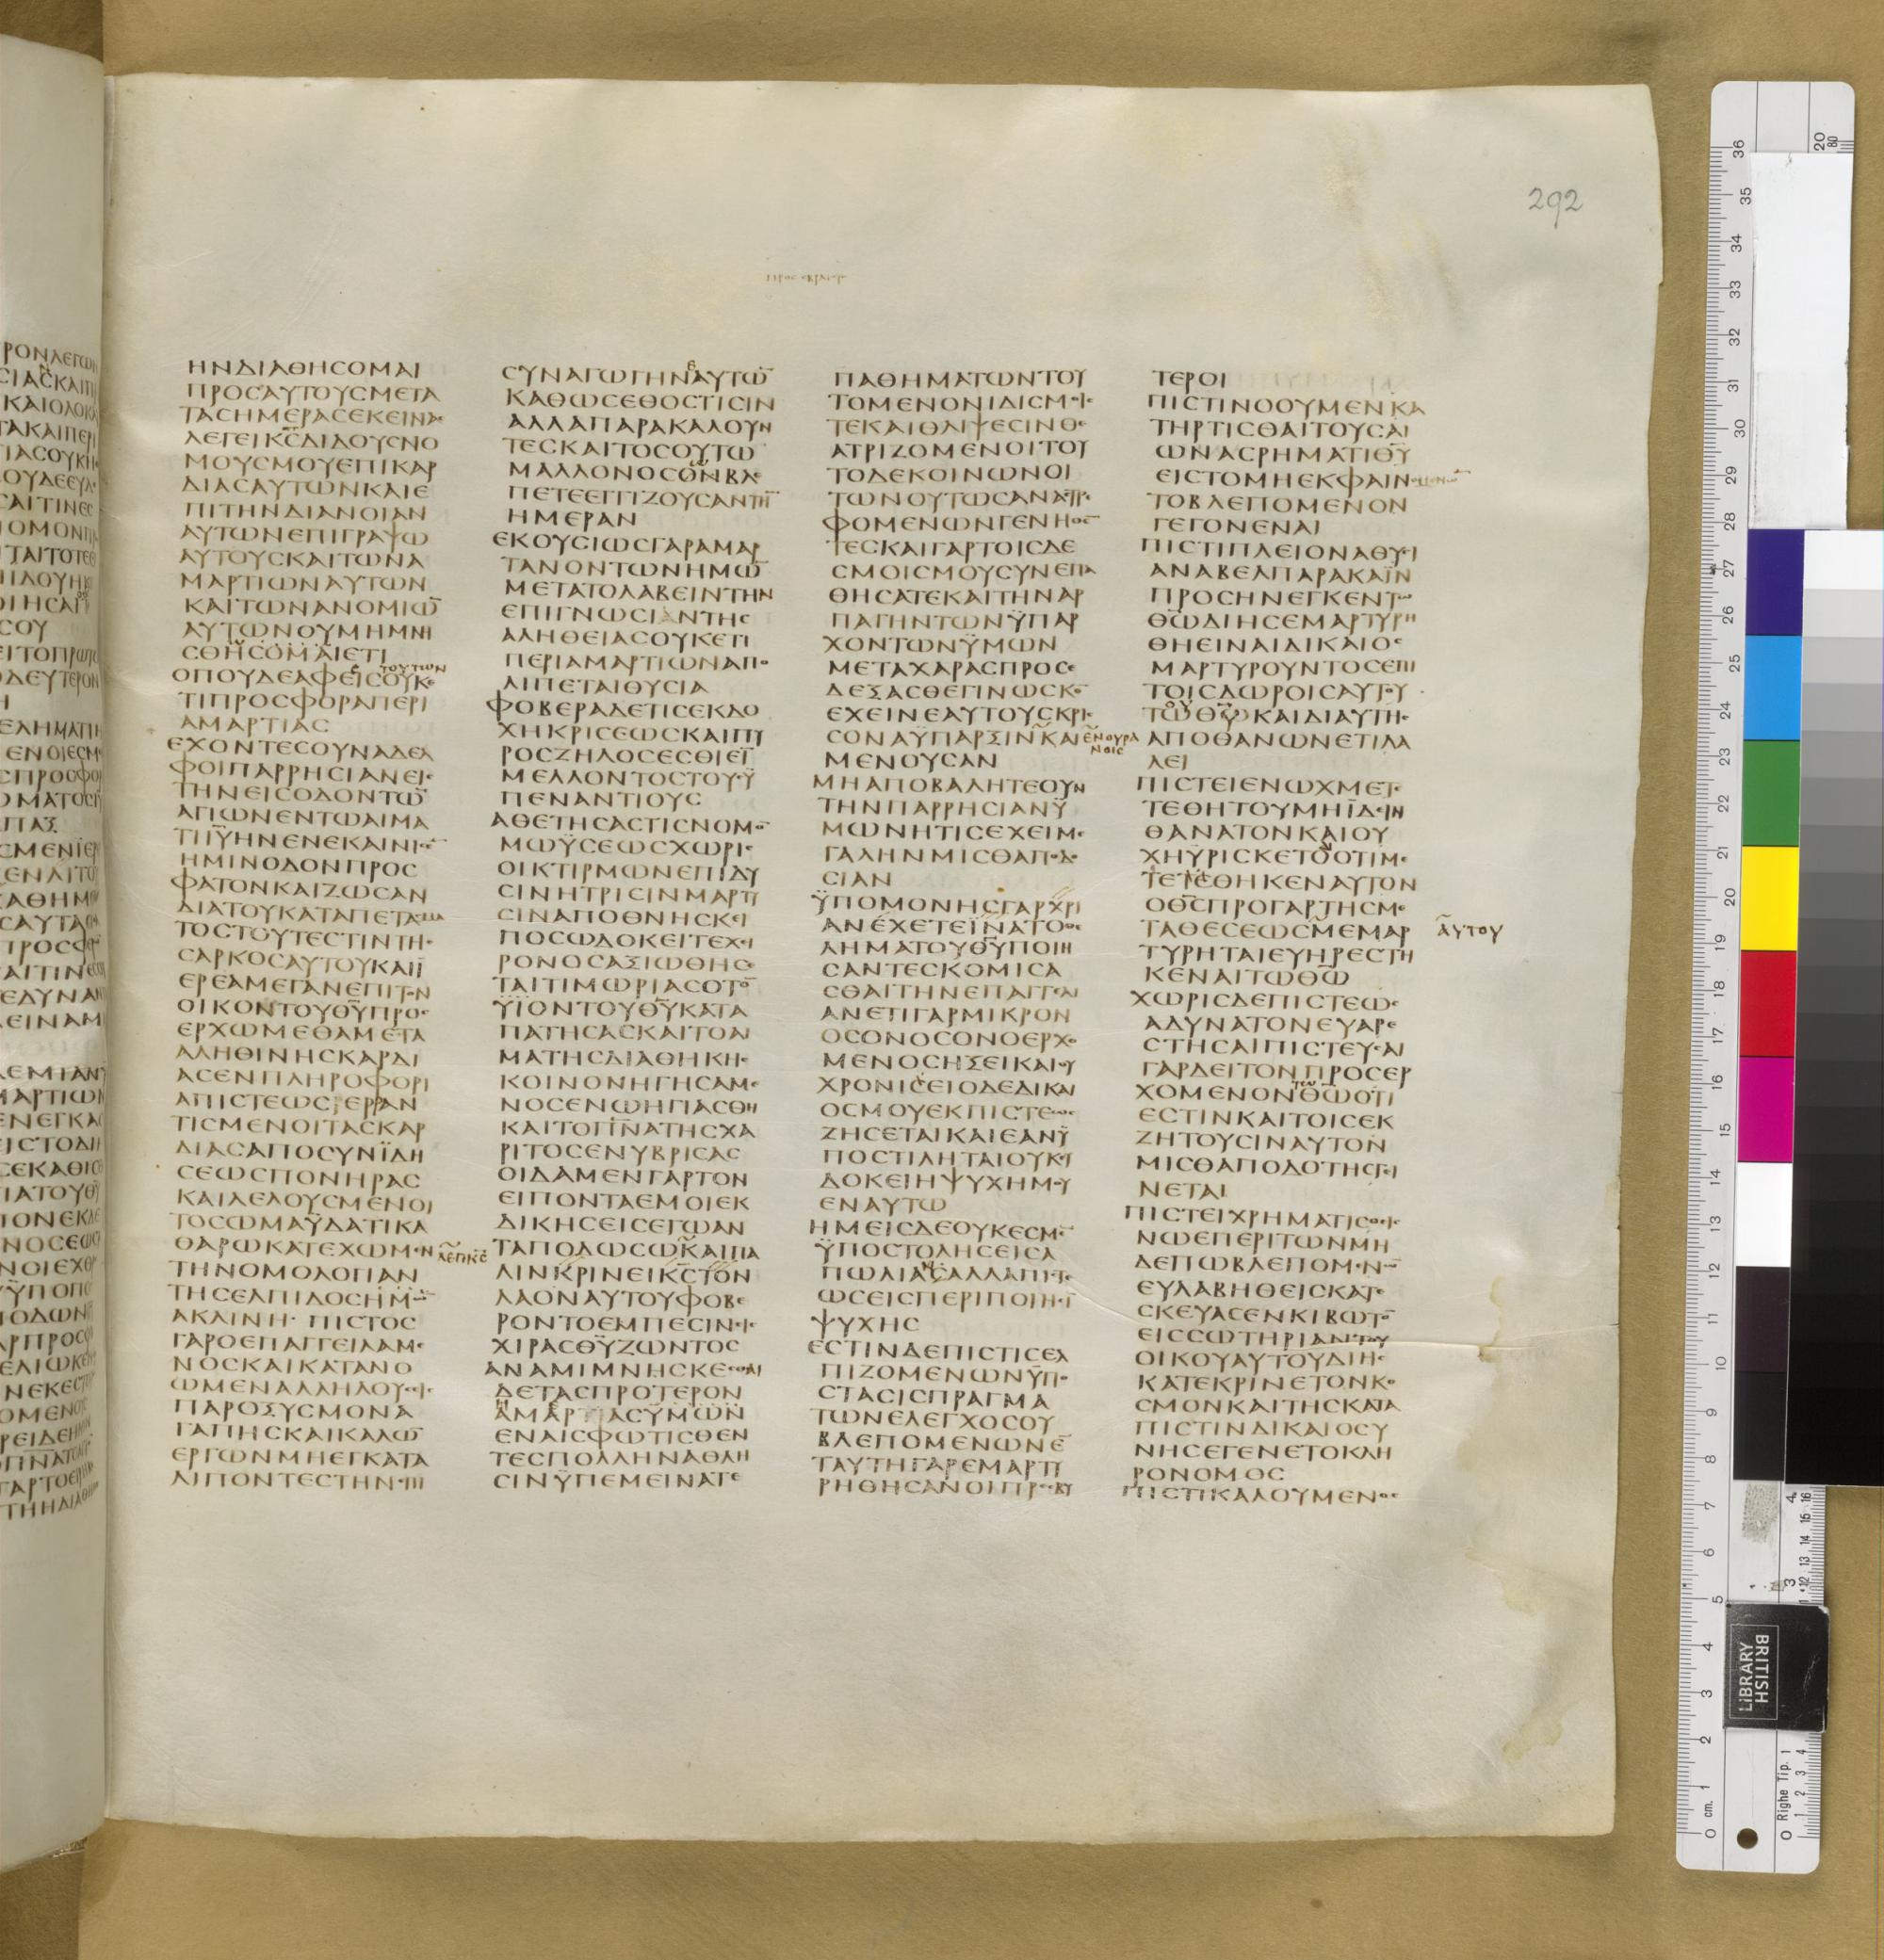 292
ΠΡΟϹ ΕΒΡΑΙΟΥϹ
ΗΝΔΙΑΘΗϹΟΜΑΙ
ΠΡΟϹΑΥΤΟΥϹΜΕΤΑ
ΤΑϹΗΜΕΡΑϹΕΚΕΙΝΑϹ
ΛΕΓΕΙΚϹΔΙΔΟΥϹΝΟ
ΜΟΥϹΜΟΥΕΠΙΚΑΡ
ΔΙΑϹΑΥΤΩΝΚΑΙΕ
ΠΙΤΗΝΔΙΑΝΟΙΑΝ
ΑΥΤΩΝΕΠΙΓΡΑΨΩ
ΑΥΤΟΥϹΚΑΙΤΩΝΑ
ΜΑΡΤΙΩΝΑΥΤΩΝ
ΚΑΙΤΩΝΑΝΟΜΙΩ̅
ΑΥΤΩΝΟΥΜΗΜΝΗ
ϹΘΗϹΟΜΑΙΕΤΙ
ΟΠΟΥΔΕΑΦΕΙϹΟΥΚΕ
ΤΟΥΤΩΝ
ΤΙΠΡΟϹΦΟΡΑΠΕΡΙ
ΑΜΑΡΤΙΑϹ
ΕΧΟΝΤΕϹΟΥΝΑΔΕΛ
ΦΟΙΠΑΡΡΗϹΙΑΝΕΙϹ
ΤΗΝΕΙϹΟΔΟΝΤΩ̅
ΑΓΙΩΝΕΝΤΩΑΙΜΑ
ΤΙΙΥΗΝΕΝΕΚΑΙΝΙϹΕ̅
ΗΜΙΝΟΔΟΝΠΡΟϹ
ΦΑΤΟΝΚΑΙΖΩϹΑΝ
ΔΙΑΤΟΥΚΑΤΑΠΕΤΑϹΜΑ
ΤΟϹΤΟΥΤΕϹΤΙΝΤΗϹ
ϹΑΡΚΟϹΑΥΤΟΥΚΑΙΪ
ΕΡΕΑΜΕΓΑΝΕΠΙΤΟΝ
ΟΙΚΟΝΤΟΥΘΥΠΡΟϹ
ΕΡΧΩΜΕΘΑΜΕΤΑ
ΑΛΗΘΙΝΗϹΚΑΡΔΙ
ΑϹΕΝΠΛΗΡΟΦΟΡΙ
ΑΠΙϹΤΕΩϹΡΕΡΑΝ
ΤΙϹΜΕΝΟΙΤΑϹΚΑΡ
ΔΙΑϹΑΠΟϹΥΝΪΔΗ
ϹΕΩϹΠΟΝΗΡΑϹ
ΚΑΙΛΕΛΟΥϹΜΕΝΟΙ
ΤΟϹΩΜΑΫΔΑΤΙΚΑ
ΘΑΡΩΚΑΤΕΧΩΜΕΝ
ΤΗΝΟΜΟΛΟΓΙΑΝ
ΤΗϹΕΛΠΙΔΟϹΗΜΩ̅
ΑΚΛΙΝΗ· ΠΙϹΤΟϹ
ΓΑΡΟΕΠΑΓΓΕΙΛΑΜΕ
ΝΟϹΚΑΙΚΑΤΑΝΟ
ΩΜΕΝΑΛΛΗΛΟΥϹΕΙϹ
ΠΑΡΟΞΥϹΜΟΝΑ
ΓΑΠΗϹΚΑΙΚΑΛΩ̅
ΕΡΓΩΝΜΗΕΓΚΑΤΑ
ΛΙΠΟΝΤΕϹΤΗΝΕΠΙ
ϹΥΝΑΓΩΓΗΝΑΥΤΩ̅
ΚΑΘΩϹΕΘΟϹΤΙϹΙΝ
ΑΛΛΑΠΑΡΑΚΑΛΟΥΝ
ΤΕϹΚΑΙΤΟϹΟΥΤΩ
ΜΑΛΛΟΝΟϹΟΝΒΛΕ
ΠΕΤΕΕΓΓΙΖΟΥϹΑΝΤΗ̅
ΗΜΕΡΑΝ
ΕΚΟΥϹΙΩϹΓΑΡΑΜΑΡ
ΤΑΝΟΝΤΩΝΗΜΩ̅
ΜΕΤΑΤΟΛΑΒΕΙΝΤΗΝ
ΕΠΙΓΝΩϹΙΑΝΤΗϹ
ΑΛΗΘΕΙΑϹΟΥΚΕΤΙ
ΠΕΡΙΑΜΑΡΤΙΩΝΑΠΟ
ΛΙΠΕΤΑΙΘΥϹΙΑ
ΦΟΒΕΡΑΔΕΤΙϹΕΚΔΟ
ΧΗΚΡΙϹΕΩϹΚΑΙΠΥ
ΡΟϹΖΗΛΟϹΕϹΘΙΕΙ̅
ΜΕΛΛΟΝΤΟϹΤΟΥϹΫ
ΠΕΝΑΝΤΙΟΥϹ
ΑΘΕΤΗϹΑϹΤΙϹΝΟΜΟ̅
ΜΩΫϹΕΩϹΧΩΡΙϹ
ΟΙΚΤΙΡΜΩΝΕΠΙΔΥ
ϹΙΝΗΤΡΙϹΙΝΜΑΡΤΥ
ϹΙΝΑΠΟΘΝΗϹΚΕΙ
ΠΟϹΩΔΟΚΕΙΤΕΧΕΙ
ΡΟΝΟϹΑΞΙΩΘΗϹΕ
ΤΑΙΤΙΜΩΡΙΑϹΟΤΟ̅
ΫΪΟΝΤΟΥΘΥΚΑΤΑ
ΠΑΤΗϹΑϹΚΑΙΤΟΑΙ
ΜΑΤΗϹΔΙΑΘΗΚΗϹ
ΚΟΙΝΟΝΗΓΗϹΑΜΕ
ΝΟϹΕΝΩΗΓΙΑϹΘΗ
ΚΑΙΤΟΠΝΑΤΗϹΧΑ
ΡΙΤΟϹΕΝΥΒΡΙϹΑϹ
ΟΙΔΑΜΕΝΓΑΡΤΟΝ
ΕΙΠΟΝΤΑΕΜΟΙΕΚ
ΔΙΚΗϹΕΙϹΕΓΩΑΝ
ΛΕΓΕΙΚϹ
ΤΑΠΟΔΩϹΩΚΑΙΠΑ
ΛΙΝΚΡΙΝΕΙΚϹΤΟΝ
ΛΑΟΝΑΥΤΟΥΦΟΒΕ
ΡΟΝΤΟΕΜΠΕϹΙΝΕΙϹ
ΧΙΡΑϹΘΥΖΩΝΤΟϹ
ΑΝΑΜΙΜΝΗϹΚΕϹΘΑΙ
ΔΕΤΑϹΠΡΟΤΕΡΟΝ
ΑΜΑΡΤΙΑϹΫΜΩΝ
ΕΝΑΙϹΦΩΤΙϹΘΕΝ
ΤΕϹΠΟΛΛΗΝΑΘΛΗ
ϹΙΝΫΠΕΜΕΙΝΑΤΕ
ΠΑΘΗΜΑΤΩΝΤΟΥ
ΤΟΜΕΝΟΝΙΔΙϹΜΟΙϹ
ΤΕΚΑΙΘΛΙΨΕϹΙΝΘΕ
ΑΤΡΙΖΟΜΕΝΟΙΤΟΥ
ΤΟΔΕΚΟΙΝΩΝΟΙ
ΤΩΝΟΥΤΩϹΑΝΑϹΤΡΕ
ΦΟΜΕΝΩΝΓΕΝΗΘΕ̅
ΤΕϹΚΑΙΓΑΡΤΟΙϹΔΕ
ϹΜΟΙϹΜΟΥϹΥΝΕΠΑ
ΘΗϹΑΤΕΚΑΙΤΗΝΑΡ
ΠΑΓΗΝΤΩΝΫΠΑΡ
ΧΟΝΤΩΝΫΜΩΝ
ΜΕΤΑΧΑΡΑϹΠΡΟϹΕ
ΔΕΞΑϹΘΕΓΙΝΩϹΚΟ̅
ΕΧΕΙΝΕΑΥΤΟΥϹΚΡΙϹ
ϹΟΝΑΫΠΑΡΞΙΝΚΑΙ
ΕΝΟΥΡΑ
ΝΟΙϹ
ΜΕΝΟΥϹΑΝ
ΜΗΑΠΟΒΑΛΗΤΕΟΥΝ
ΤΗΝΠΑΡΡΗϹΙΑΝΫ
ΜΩΝΗΤΙϹΕΧΕΙΜΕ
ΓΑΛΗΝΜΙϹΘΑΠΟΔΟ
ϹΙΑΝ
ΫΠΟΜΟΝΗϹΓΑΡΧΡΙ
ΑΝΕΧΕΤΕΪΝΑΤΟΘΕ
ΛΗΜΑΤΟΥΘΥΠΟΙΗ
ϹΑΝΤΕϹΚΟΜΙϹΑ
ϹΘΑΙΤΗΝΕΠΑΓΓΕΛΙ
ΑΝΕΤΙΓΑΡΜΙΚΡΟΝ
ΟϹΟΝΟϹΟΝΟΕΡΧΟ
ΜΕΝΟϹΗΞΕΙΚΑΙΟΥ
ΧΡΟΝΙϹΕΙΟΔΕΔΙΚΑΙ
ΟϹΜΟΥΕΚΠΙϹΤΕΩϹ
ΖΗϹΕΤΑΙΚΑΙΕΑΝΫ
ΠΟϹΤΙΛΗΤΑΙΟΥΚΕΥ
ΔΟΚΕΙΗΨΥΧΗΜΟΥ
ΕΝΑΥΤΩ
ΗΜΕΙϹΔΕΟΥΚΕϹΜΕ̅
ΫΠΟϹΤΟΛΗϹΕΙϹΑ
ΠΩΛΙΑϹΑΛΛΑΠΙϹΤΕ
ΩϹΕΙϹΠΕΡΙΠΟΙΗϹΙ̅
ΨΥΧΗϹ
ΕϹΤΙΝΔΕΠΙϹΤΙϹΕΛ
ΠΙΖΟΜΕΝΩΝΫΠΟ
ϹΤΑϹΙϹΠΡΑΓΜΑ
ΤΩΝΕΛΕΓΧΟϹΟΥ
ΒΛΕΠΟΜΕΝΩΝΕ̅
ΤΑΥΤΗΓΑΡΕΜΑΡΤΥ
ΡΗΘΗϹΑΝΟΙΠΡΕϹΒΥ
ΤΕΡΟΙ
ΠΙϹΤΙΝΟΟΥΜΕΝΚΑ
ΤΗΡΤΙϹΘΑΙΤΟΥϹΑΙ
ΩΝΑϹΡΗΜΑΤΙΘΥ
ΕΙϹΤΟΜΗΕΚΦΑΙΝΟΜΕΝΩ̅
ΤΟΒΛΕΠΟΜΕΝΟΝ
ΓΕΓΟΝΕΝΑΙ
ΠΙϹΤΙΠΛΕΙΟΝΑΘΥϹΙ
ΑΝΑΒΕΛΠΑΡΑΚΑΪΝ
ΠΡΟϹΗΝΕΓΚΕΝΤΩ
ΘΩΔΙΗϹΕΜΑΡΤΥΡΗ
ΘΗΕΙΝΑΙΔΙΚΑΙΟϹ
ΜΑΡΤΥΡΟΥΝΤΟϹΕΠΙ
ΤΟΙϹΔΩΡΟΙϹΑΥΤΟΥ
ΤΩΘΩΚΑΙΔΙΑΥΤΗϹ
ΑΠΟΘΑΝΩΝΕΤΙΛΑ
ΛΕΙ
ΠΙϹΤΕΙΕΝΩΧΜΕΤΕ
ΤΕΘΗΤΟΥΜΗΪΔΕΙΝ
ΘΑΝΑΤΟΝΚΑΙΟΥ
ΧΗΫΡΙϹΚΕΤΟΟΤΙΜΕ
ΤΕΤΕΘΗΚΕΝΑΥΤΟΝ
ΟΘϹΠΡΟΓΑΡΤΗϹΜΕ
ΤΑΘΕϹΕΩϹΜΕΜΑΡ
ΑΥΤΟΥ
ΤΥΡΗΤΑΙΕΥΗΡΕϹΤΗ
ΚΕΝΑΙΤΩΘΩ
ΧΩΡΙϹΔΕΠΙϹΤΕΩϹ
ΑΔΥΝΑΤΟΝΕΥΑΡΕ
ϹΤΗϹΑΙΠΙϹΤΕΥϹΑΙ
ΓΑΡΔΕΙΤΟΝΠΡΟϹΕΡ
ΧΟΜΕΝΟΝΘΩΟΤΙ
ΕϹΤΙΝΚΑΙΤΟΙϹΕΚ
ΖΗΤΟΥϹΙΝΑΥΤΟΝ
ΜΙϹΘΑΠΟΔΟΤΗϹΓΙ
ΝΕΤΑΙ
ΠΙϹΤΕΙΧΡΗΜΑΤΙϹΘΕΙϹ
ΝΩΕΠΕΡΙΤΩΝΜΗ
ΔΕΠΩΒΛΕΠΟΜΕΝΩ̅
ΕΥΛΑΒΗΘΕΙϹΚΑΤΕ
ϹΚΕΥΑϹΕΝΚΙΒΩΤΟ̅
ΕΙϹϹΩΤΗΡΙΑΝΤΟΥ
ΟΙΚΟΥΑΥΤΟΥΔΙΗϹ
ΚΑΤΕΚΡΙΝΕΤΟΝΚΟ
ϹΜΟΝΚΑΙΤΗϹΚΑΤΑ
ΠΙϹΤΙΝΔΙΚΑΙΟϹΥ
ΝΗϹΕΓΕΝΕΤΟΚΛΗ
ΡΟΝΟΜΟϹ
ΠΙϹΤΙΚΑΛΟΥΜΕΝΟϹ
BRITISH
LIBRARY